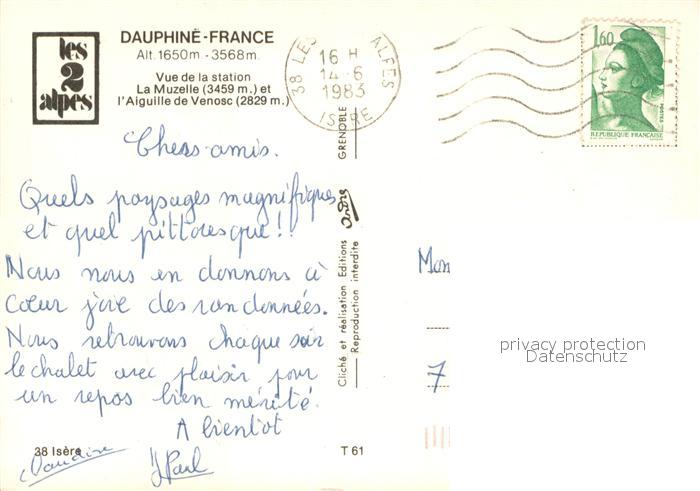 les
2
alpes
DAUPHINÉ-FRANCE
Alt. 1650m - 3568m.
Vue de la station
La Muzelle (3459 m.) et
l'Aiguille de Venosc (2829 m.)
38 LES ALPES
16 H
14-6
1983
ISERE
1,60
POSTES
REPUBLIQUE FRANÇAISE
Chers amis.
Quels paysages magnifiques
et quel pittoresque!!
Nous nous en donnons à
coeur joie des randonnées.
Nous retrouvons chaque soir
le chalet avec plaisir pour
un repos bien mérité.
A bientôt
38 Isère
T 61
GRENOBLE
André
Cliché et réalisation Editions
Reproduction interdite
Mon
7
privacy protection
Datenschutz